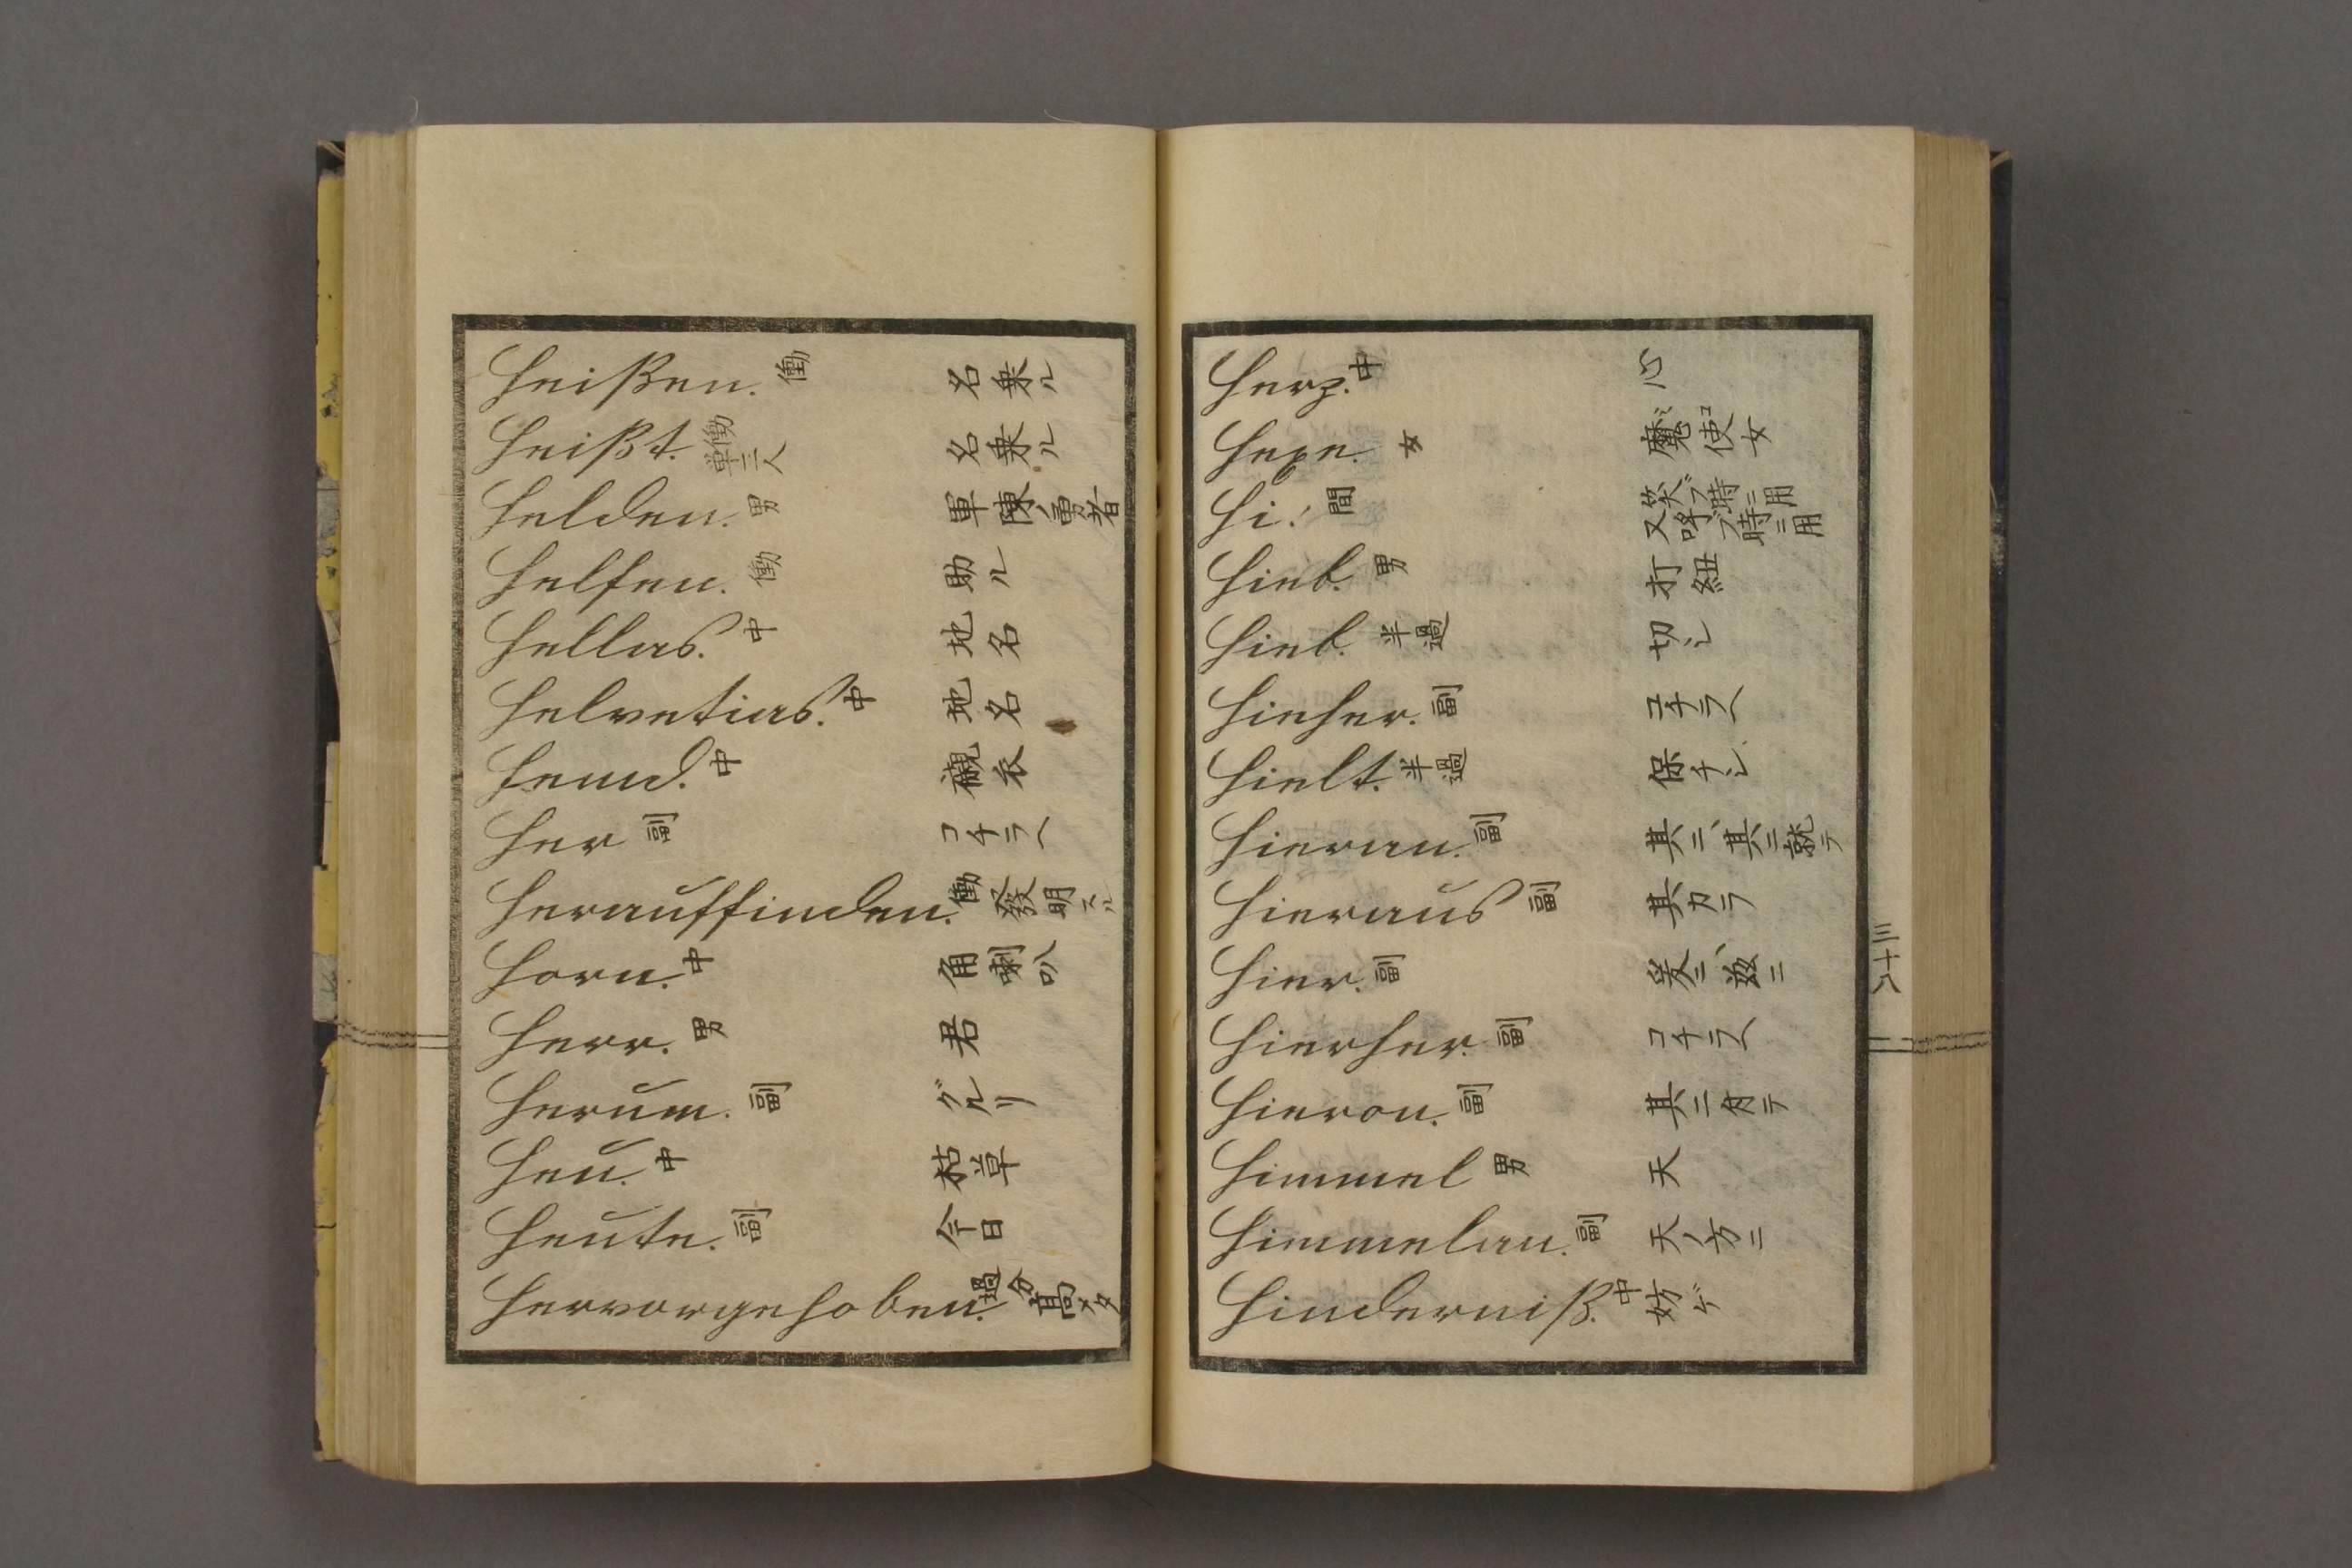 Heißen. 働 名乗ル
Heißt. 働単三人 名乗ル
Helden. 男 軍陳ノ勇者
Helfen. 働 助ル
Hellas. 中 地名
Helvetias. 中 地名
Hemd. 中 襯衣
Her 副 コチラヘ
Herauffinden. 働 發明スル
Horn. 中 角喇叭
Herr. 男 君
Herum. 副 グルリ
Heu. 中 枯草
Heute. 副 今日
Hervorgehoben. 過分 高メタ
Herz. 中 心
Hexe. 女 魔使女
Hi! 間 笑フ時ニ用 又呼ブ時ニ用
Hieb. 男 打紐
Hieb. 半過 切シ
Hieher. 副 コチラヘ
Hielt. 半過 保チシ
Hieran. 副 其ニ、其ニ就テ
Hieraus 副 其カラ
Hier. 副 爰ニ、茲ニ
Hierher. 副 コチラヘ
Hieron. 副 其ニ付テ
Himmel 男 天
Himmelan. 副 天ノ方ニ
Hinderniß. 中 妨ゲ
三十八